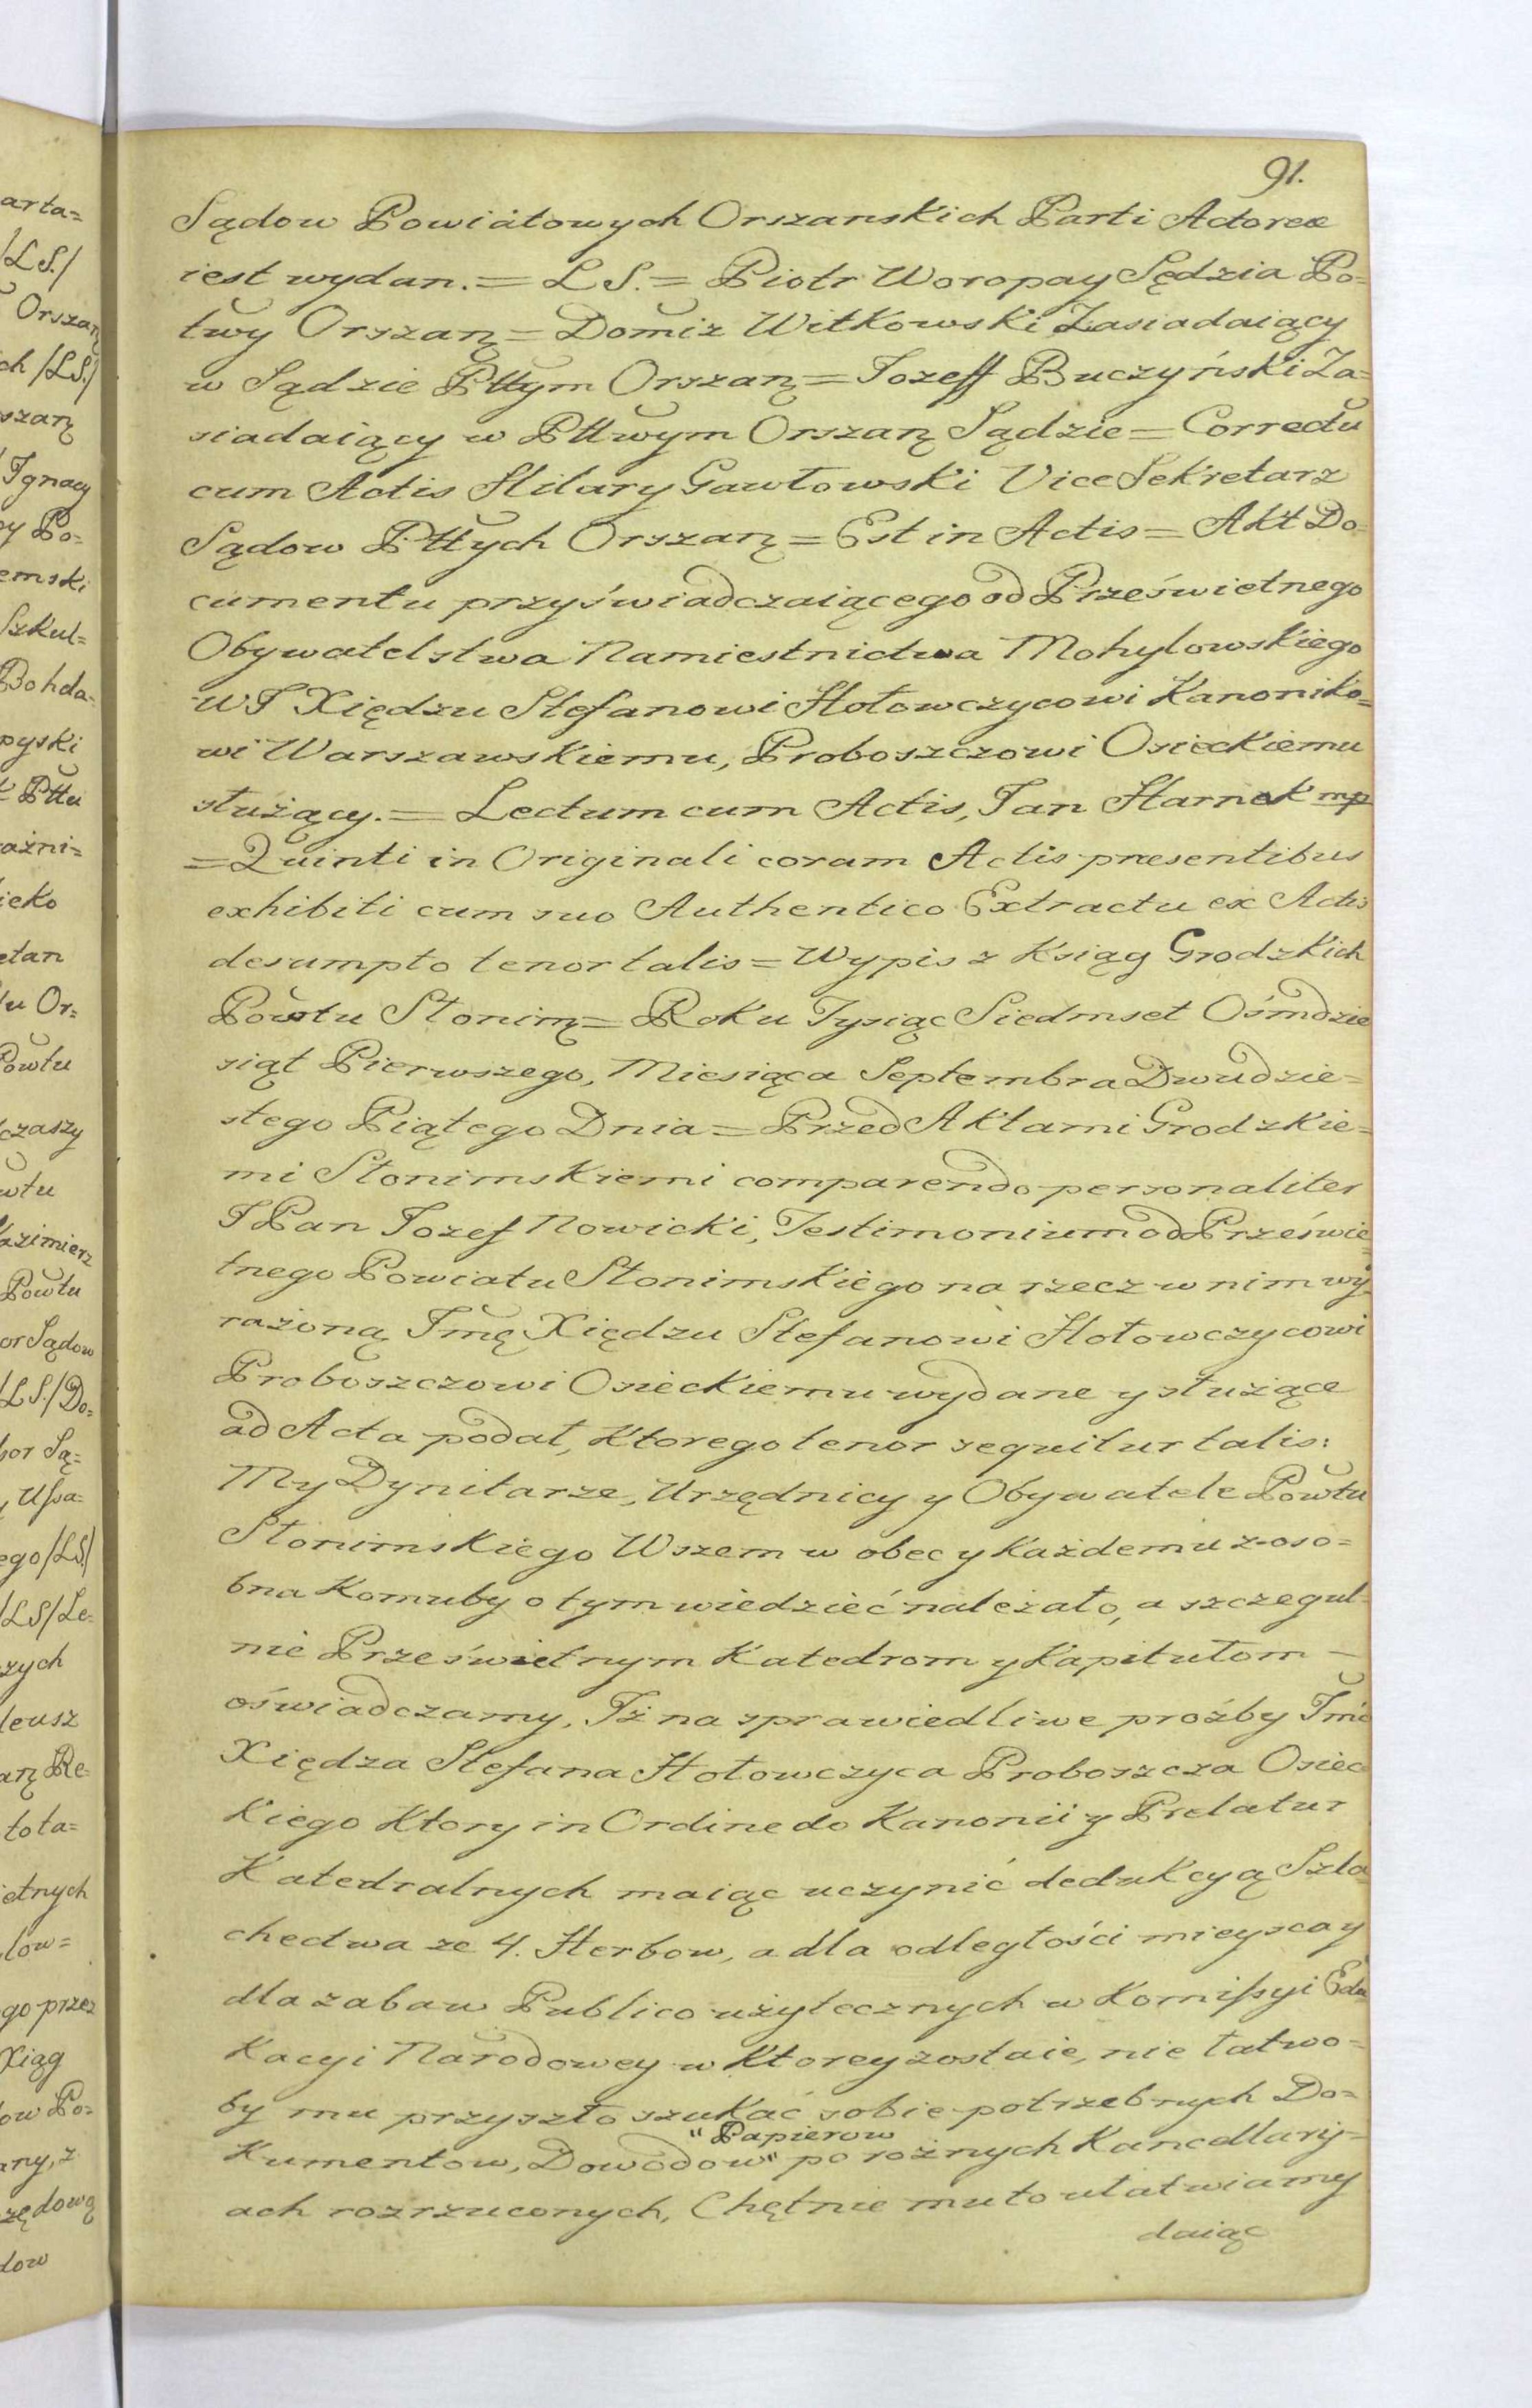 arta=
/LS./
Orszaɳ
ch /LS./
szaɳ
Ignacy
py Po=
emski
Szkul=
Bohda=
pyski
Pttu
ażni=
ieko
etan
tu Or=
Powtu
czaszy
wtu
azimierz
Powtu
or Sądow
/LS/ Do=
bor Są=
ego /LS/
/LS/ Le=
zych
leusz
aɳ Re=
tota=
ietnych
low=
go przez
Xiąg
ow Po=
any, z
zędową
dow
91.
Sądow Powiatowych Orszanskich Parti Actorex
iest wydan. = LS. = Piotr Woropay Sędzia Po=
twy Orszaɳ = Domiz Witkowski Zasiadaiący
w Sądzie Pttym Orszaɳ = Jozeff Buczyński Za=
siadaiący w Pttwym Orszaɳ Sądzie = Correctu
cum Actis Hilary Gawłowski Vice Sekretarz
Sądow Pttych Orszaɳ = Est in Actis = Akt Do=
cumentu przyświadczaiącego od Prześwietnego
Obywatelstwa Namiestnictwa Mohylowskiego
WJ Xiędzu Stefanowi Hołowczycowi Kanoniko=
wi Warszawskiemu, Proboszczowi Osieckiemu
służący. = Lectum cum Actis, Jan Harnak mp
= Quinti in Originali coram Actis praesentibus
exhibiti cum suo Authentico Extractu ex Actis
desumpto tenor talis = Wypis z Ksiąg Grodzkich
Powtu Słonimɳ = Roku Tysiąc Siedmset Ośmdzie
siąt Pierwszego, Miesiąca Septembra Dwudzie=
stego Piątego Dnia = Przed Aktami Grodzkie=
mi Słonimskiemi comparendo personaliter
JPan Jozef Nowicki, Testimonium od Prześwie=
tnego Powiatu Słonimskiego na rzecz w nim wy
rażoną Jmę Xiędzu Stefanowi Hołowczycowi
Proboszczowi Osieckiemu wydane y służące
ad Acta podał, Ktorego tenor sequitur talis:
My Dynitarze, Urzędnicy y Obywatele Powtu
Słonimskiego Wszem w obec y Każdemu z-oso=
bna Komuby o tym wiedzieć należało, a szczegul=
nie Prześwietnym Katedrom y Kapitułom –
oświadczamy, Iż na sprawiedliwe proźby Jmć
Xiędza Stefana Hołowczyca Proboszcza Osiec
kiego Ktory in Ordine do Kanonii y Prelatur
Katedralnych maiąc uczynić dedukcyą Szla
chectwa ze 4. Herbow, a dla odległości mieysca y
dla zabaw Publico użytecznych w Komissyi Edu
kacyi Narodowey w Ktorey zostaie, nie łatwo=
by mu przyszło szukać sobie potrzebnych Do=
kumentow, Dowodow "Papierow" po rożnych Kancellary=
ach rozrzuconych, Chętnie mu to ułatwiamy
daiąc